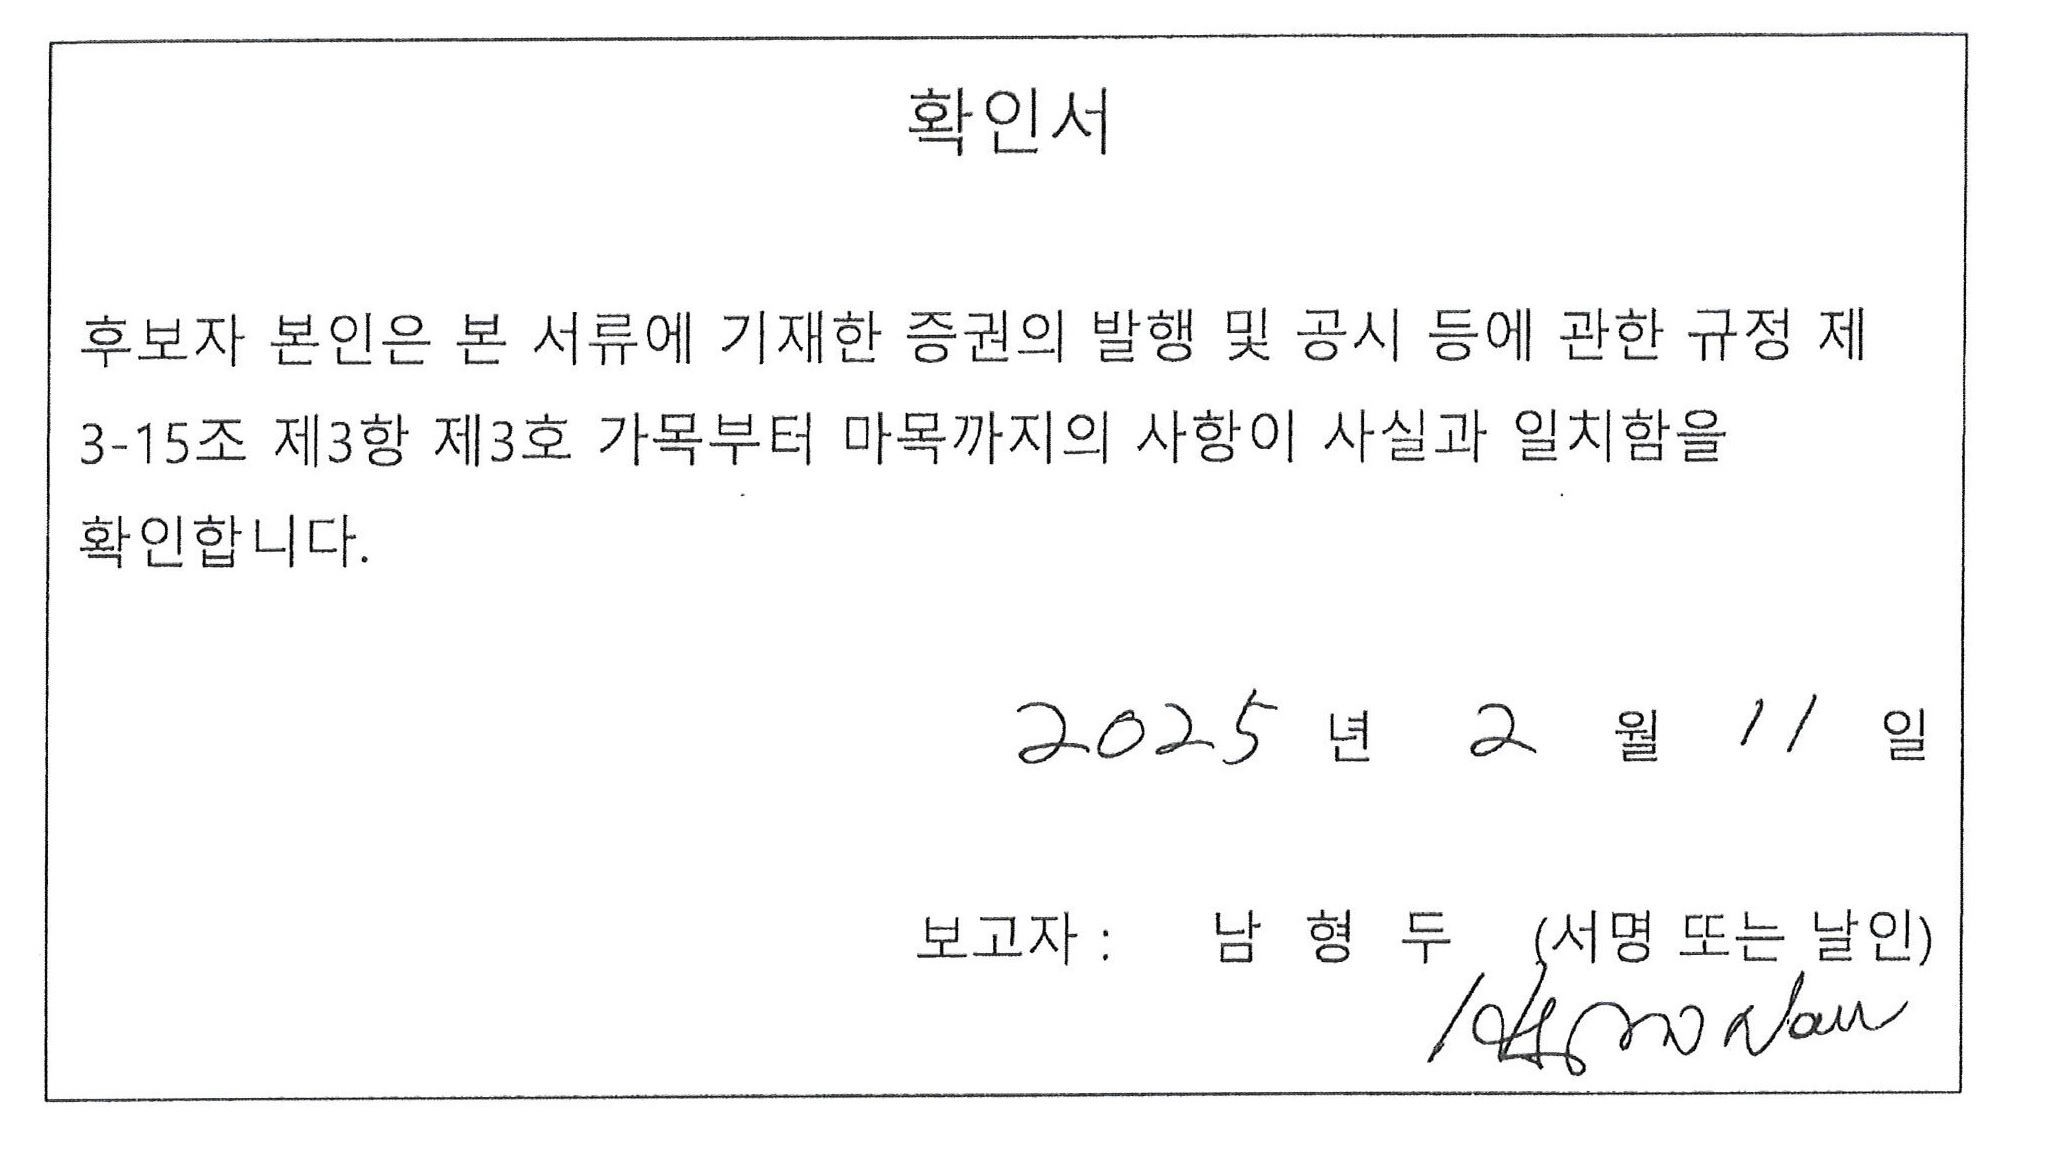 확인서
후보자 본인은 본 서류에 기재한 증권의 발행 및 공시 등에 관한 규정 제
3-15조 제3항 제3호 가목부터 마목까지의 사항이 사실과 일치함을
확인합니다.
2025 년 2 월 11 일
보고자 : 남 형 두 (서명 또는 날인)
Nam